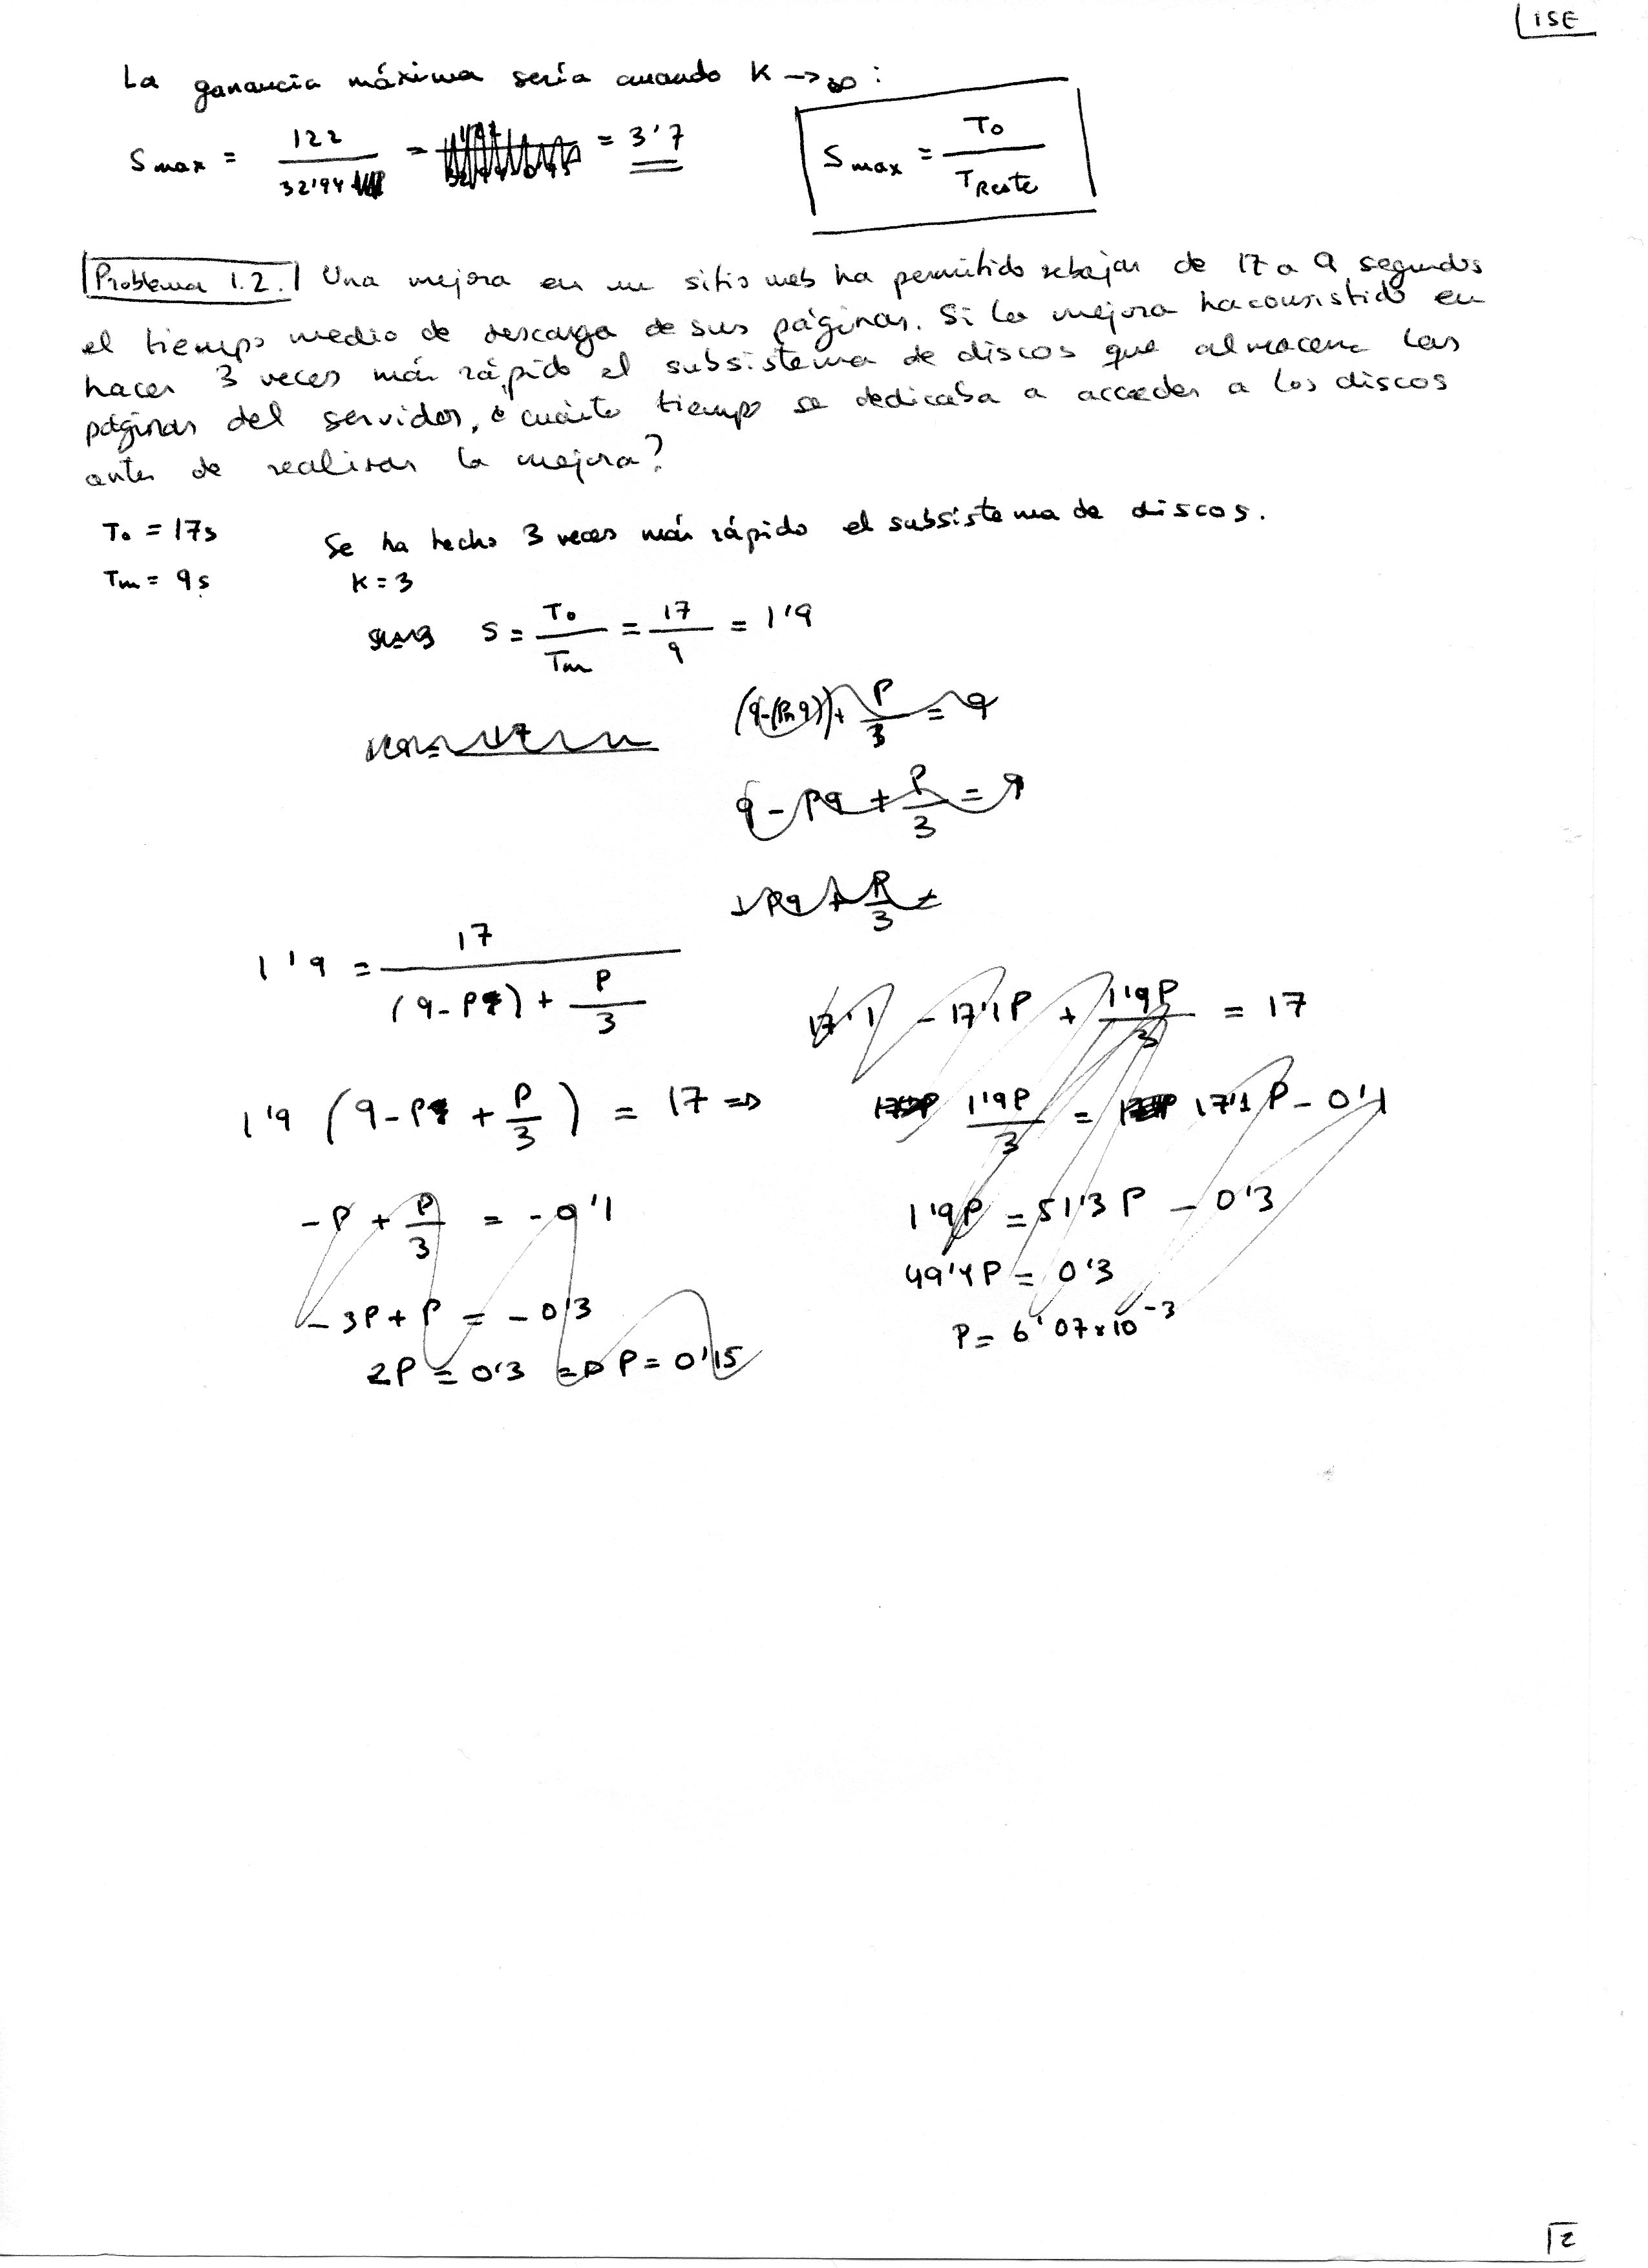 ISE
La ganancia máxima sería cuando K → ∞ :
S max = 122 / 32'94 = = 3'7
S max = To / TResto
Problema 1.2. Una mejora en un sitio web ha permitido rebajar de 17 a 9 segundos
el tiempo medio de descarga de sus páginas. Si la mejora ha consistido en
hacer 3 veces más rápido el subsistema de discos que almacena las
páginas del servidor, ¿cuánto tiempo se dedicaba a acceder a los discos
antes de realizar la mejora?
To = 17s Se ha hecho 3 veces más rápido el subsistema de discos.
Tm = 9s K = 3
S = To / Tm = 17 / 9 = 1'9
+ P / 3 = 9
9 - P9 + P / 3 = 9
P9 + P / 3 =
1'9 = 17 / (9 - P) + P / 3
17'1 - 17'1P + 1'9P / 3 = 17
1'9 (9 - P + P / 3) = 17 ⇒
1'9P / 3 = 17'1 P - 0'1
- P + P / 3 = - 0'1
1'9P = 51'3 P - 0'3
- 3P + P = - 0'3
49'4P = 0'3
2P = 0'3 ⇒ P = 0'15
P = 6'07 x 10^-3
2